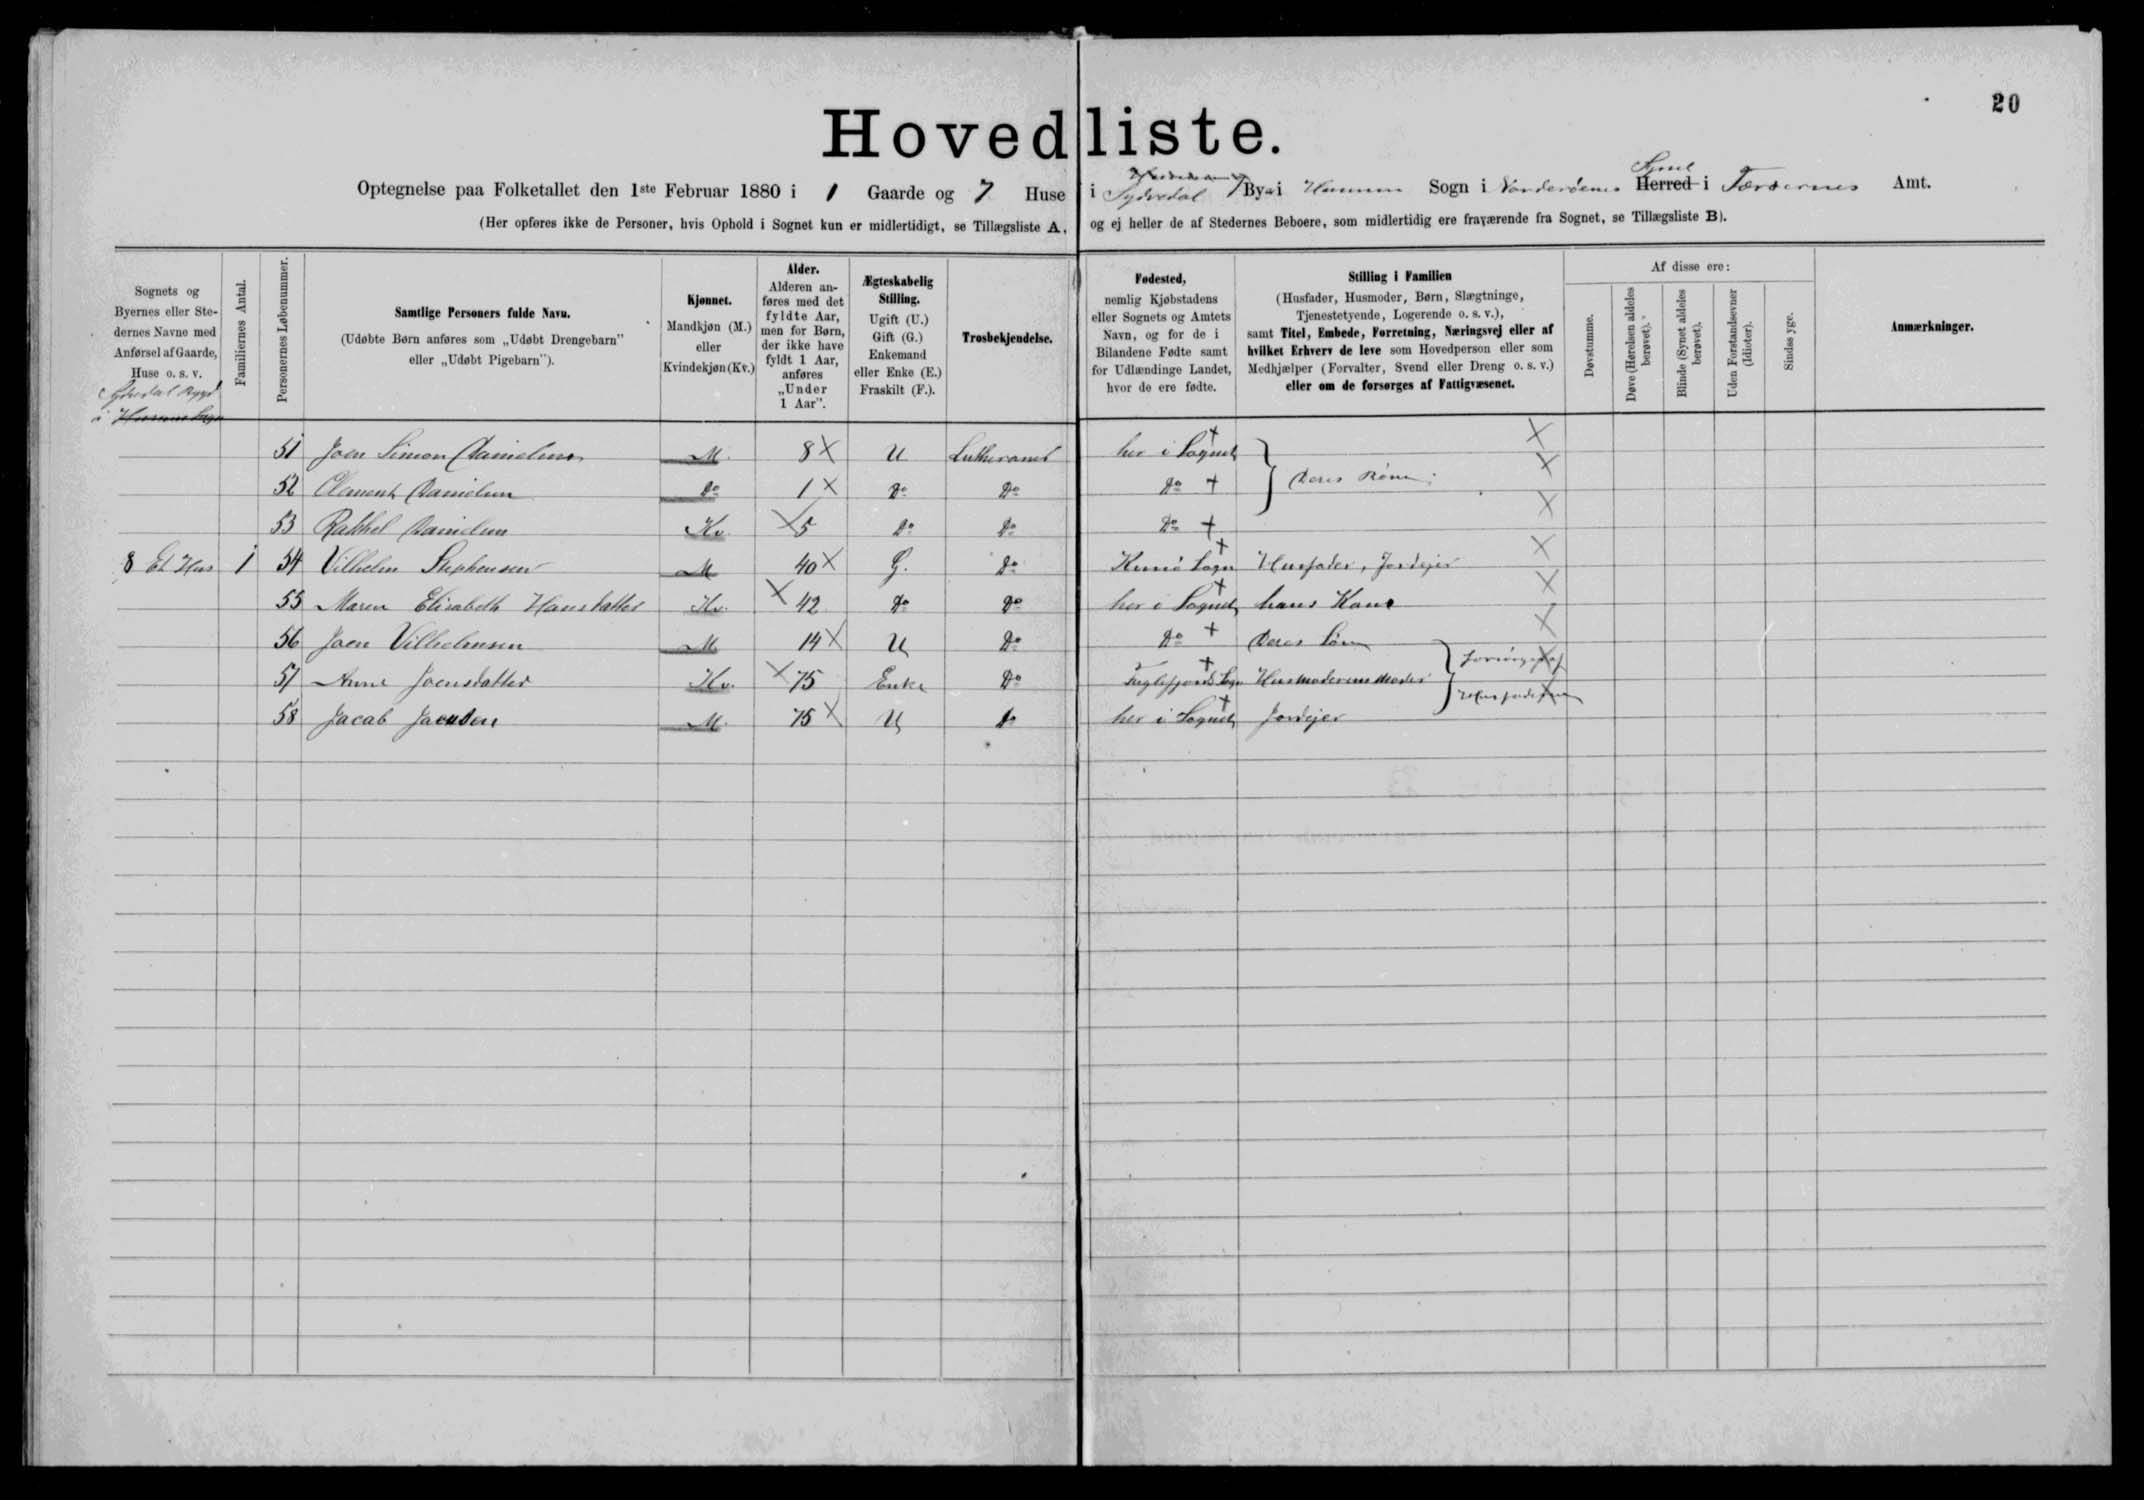 20
Hovedliste.
Optegnelse paa Folketallet den 1ste Februar 1880 i 1 Gaarde og 7 Huse i Sydredal By i Husum Sogn i Norderöenes Herred Syssel i Færöernes Amt.
(Her opføres ikke de Personer, hvis Ophold i Sognet kun er midlertidigt, se Tillægsliste A, og ej heller de af Stedernes Beboere, som midlertidig ere fraværende fra Sognet, se Tillægsliste B).
Sognets og Byernes eller Stedernes Navne med Anførsel af Gaarde, Huse o. s. v.
Familiernes Antal.
Personernes Løbenummer.
Samtlige Personers fulde Navn.
(Udøbte Børn anføres som „Udøbt Drengebarn" eller „Udøbt Pigebarn").
Kjønnet.
Mandkjøn (M.) eller Kvindekjøn (Kv.)
Alder.
Alderen anføres med det fyldte Aar, men for Børn, der ikke have fyldt 1 Aar, anføres „Under 1 Aar".
Ægteskabelig Stilling.
Ugift (U.) Gift (G.) Enkemand eller Enke (E.) Fraskilt (F.).
Trosbekjendelse.
Fødested,
nemlig Kjøbstadens eller Sognets og Amtets Navn, og for de i Bilandene Fødte samt for Udlændinge Landet, hvor de ere fødte.
Stilling i Familien
(Husfader, Husmoder, Børn, Slægtninge, Tjenestetyende, Logerende o. s. v.),
samt Titel, Embede, Forretning, Næringsvej eller af hvilket Erhverv de leve som Hovedperson eller som Medhjælper (Forvalter, Svend eller Dreng o. s. v.)
eller om de forsørges af Fattigvæsenet.
Af disse ere:
Døvstumme.
Døve (Hørelsen aldeles berøvet).
Blinde (Synet aldeles berøvet).
Uden Forstandsevner (Idioter).
Sindssyge.
Anmærkninger.
Sydredal Bygd
i Husum Sogn
51 Joen Simon Danielsen M. 8 X U Lutheraner her i Sognet + X
52 Clement Danielsen Do 1 X Do Do Do + } Deres Børn X
53 Rakkel Danielsen Kv. X 5 Do Do Do + X
8 Et Hus 1 54 Vilhelm Stephensen M 40 X G. Do Kunö Sogn + Husfader, Jordejer X
55 Maren Elisabeth Hansdatter Kv. X 42 Do Do her i Sognet + hans Kone X
56 Joen Vilhelmsen M 14 X U Do Do + Deres Sön X
57 Anne Joensdatter Kv. X 75 Enke Do Fuglefjords Sogn + Husmoderens Moder } forsörges af X
Husfaderen X
58 Jacob M. 75 X U Do her i Sognet + Jordejer